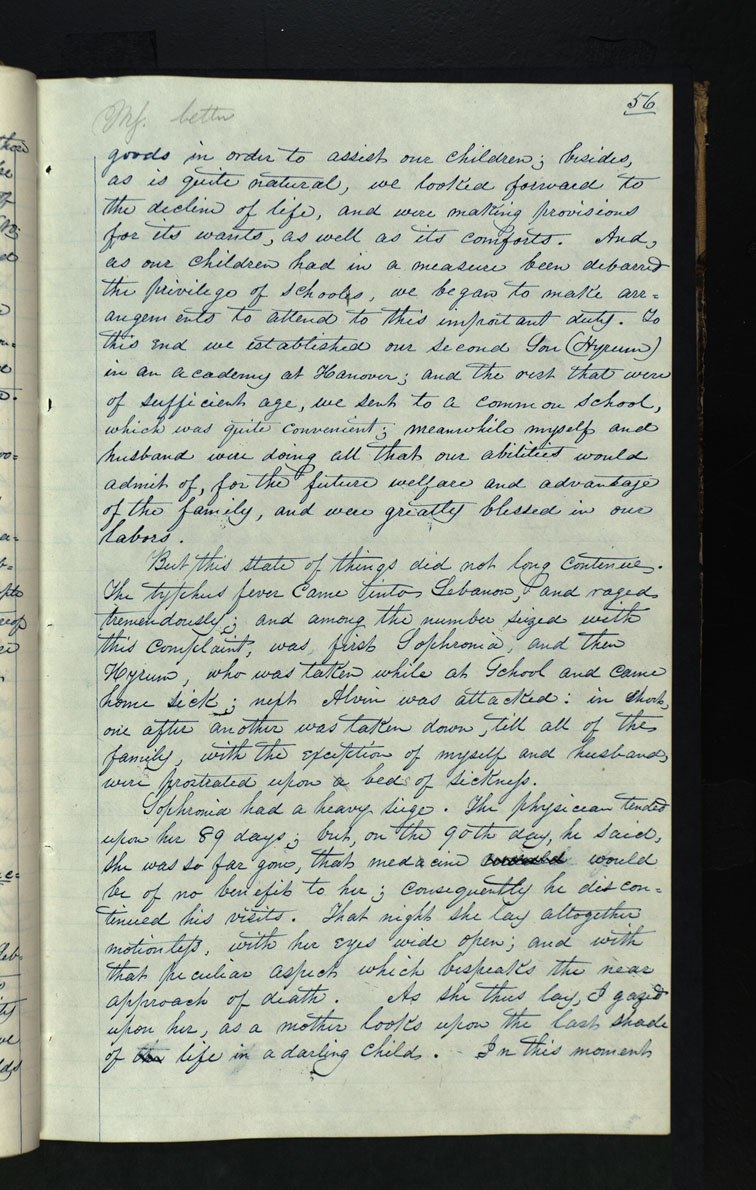 56
goods in order to assist our children; besides,
as is quite natural, we looked forward to
the decline of life, and were making provisions
for its wants, as well as its comforts. And,
as our children had in a measure been debarred
the privilege of schools, we began to make arr=
angements to attend to this important duty. To
this end we established our second Son (Hyrum)
in an academy at Hanover; and the rest that were
of sufficient age, we sent to a common school,
which was quite convenient; meanwhile myself and
husband were doing all that our abilities would
admit of, for the future welfare and advantage
of the family, and were greatly blessed in our
labors.
But this state of things did not long continue.
The typhus fever came into Lebanon, and raged
tremendously; and among the number seized with
this complaint, was, first Sophronia, and then
Hyrum, who was taken while at School and came
home sick; next Alvin was attacked: in short,
one after another was taken down, till all of the
family, with the exception of myself and husband,
were prostrated upon a bed of sickness.
Sophronia had a heavy siege. The physician tended
upon her 89 days; but, on the 90th day, he said,
she was so far gone, that medacine would
be of no benefit to her; consequently he discon=
tinued his visits. That night she lay altogether
motionless, with her eyes wide open; and with
that peculiar aspect which bespeaks the near
approach of death. As she thus lay, I gazed
upon her, as a mother looks upon the last shade
of life in a darling child. In this moment